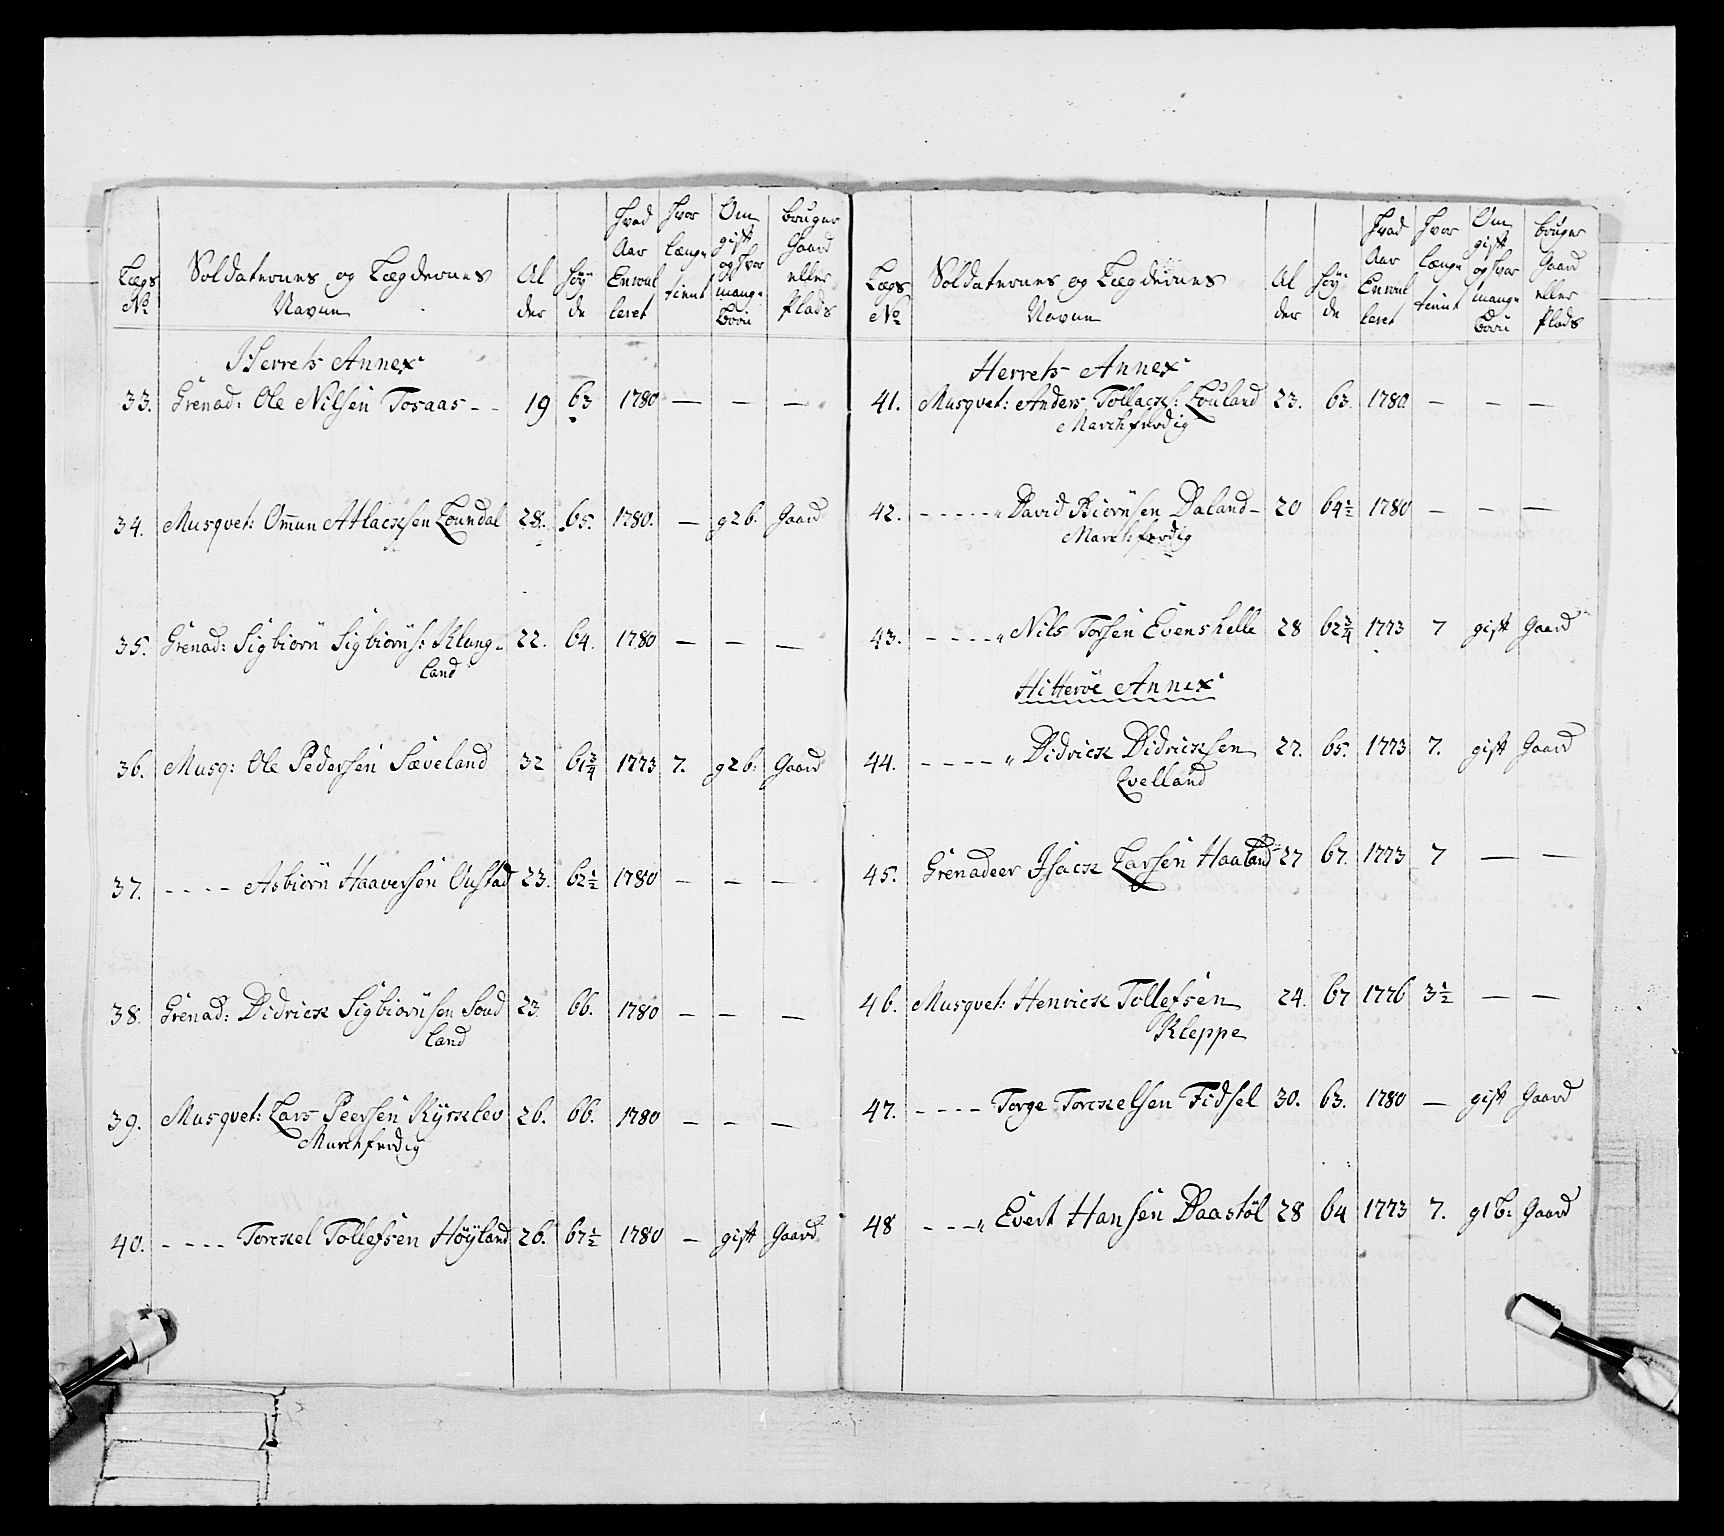 Lægs No | Soldaternes og Lægdernes Navne | Al der | Höy de | Hvad Aar Enroul leret | Hvor længe tient | Om gift og hvor mange Börn | bruger Gaard eller Plads
Herrets Annex
33. Grenad: Ole Nilsen Tosaas - - 19 63 1780 — — —
34. Musqvet: Omun Atlacksen Loundal 28. 65. 1780. — g 2 b. Gaard
35. Grenad: Sigbiörn Sigbiörns: Klung-
land 22. 64. 1780 — — —
36. Musq: Ole Pedersen Sæveland 32 61 3/4 1773 7. g 2 b: Gaard
37. - - - - Asbiörn Haaversen Oustad 23. 62 1/2 1780 — — —
38. Grenad: Didrick Sigbiörnsen Soud
land 23 66. 1780 — — —
39. Musqvet: Lars Peersen Kÿrklev 26. 66. 1780 — — —
Marchfærdig
40. - - - - Torckel Tollefsen Höÿland 26. 67 1/2 1780 — gift Gaard
Lægs No | Soldaternes og Lægdernes Navne | Al der | Höy de | Hvad Aar Enroul leret | Hvor længe tient | Om gift og hvor mange Börn | bruger Gaard eller Plads
Herrets Annex
41. Musqvet: Anders Tollacks: Louland 23. 63. 1780 — — —
Marchfærdig
42. - - - - - " David Biörnsen Daland - 20 64 1/2 1780 — — —
Marchfærdig
43. - - - - " Nils Torsen Evenshelle 28 62 3/4 1773 7 gift Gaard
Hitteröe Annex
44. - - - - " Didrick Didricksen 27. 65. 1773 7. gift Gaard
Qvelland
45. Grenadeer Isack Larsen Haaland 27 67. 1773 7 — —
46. Musqvet: Henrick Tollefsen 24. 67 1776 3 1/2 — —
Kleppe
47. - - - - Torge Torckelsen Fidsel 30. 63. 1780 — gift Gaard
48 - - - " Evert Hansen Daastöl 28 64 1773 7. g 1 b: Gaard